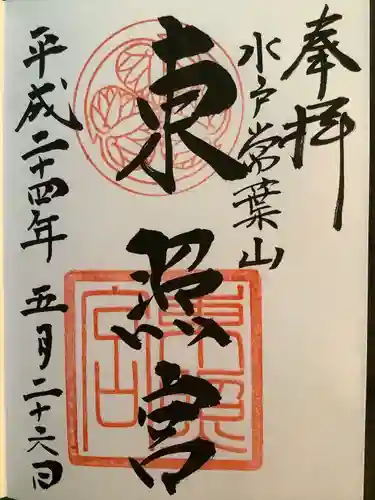 奉拝
水戸常葉山
東照宮
平成二十四年 五月二十六日
東照宮印